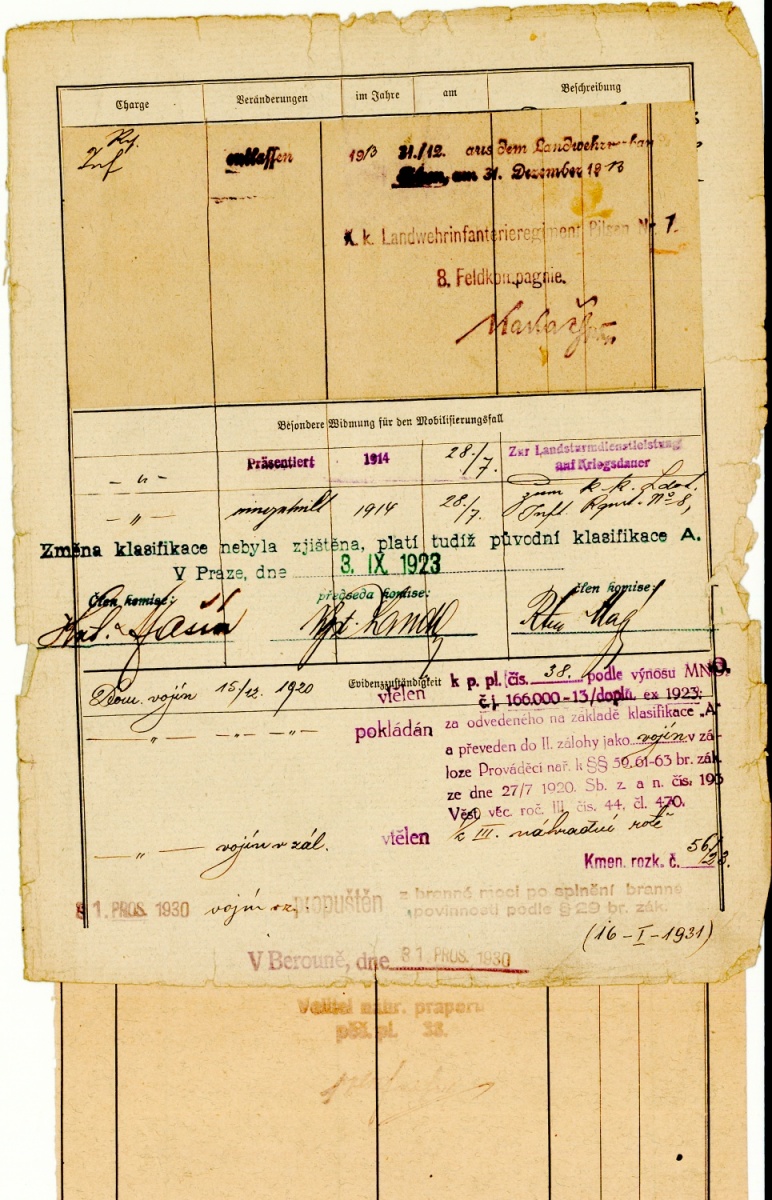 Charge Veränderungen im Jahre am Beschreibung
Inf entlassen 1913 31./12. aus dem Landwehrverban
am 31. Dezember 1913
K. k. Landwehrinfanterieregiment Pilsen Nr. 7.
8. Feldkompagnie.
Besondere Widmung für den Mobilisierungsfall
—„— Präsentiert 1914 28./7. Zur Landsturmdienstleistung
auf Kriegsdauer
—„— 1914 28./7. zum k. k. Ldst.
Inft. Rgmt. No 8,
Změna klasifikace nebyla zjištěna, platí tudíž původní klasifikace A.
V Praze, dne 3. IX. 1923
člen komise: předseda komise: člen komise:
Evidenzzuständigkeit
Dom. vojín 15/12. 1920 vtělen k p. pl. čís. 38. podle výnosu MNO.
č. j. 166.000-13/doplň. ex 1923;
—„— —„—„— pokládán za odvedeného na základě klasifikace „A"
a převeden do II. zálohy jako vojín v zá-
loze Prováděcí nař. k §§ 59, 61-63 br. zák.
ze dne 27/7 1920. Sb. z. a n. čís. 193
Věst. věc. roč. III. čís. 44, čl. 470.
—„— vojín v zál. vtělen k III. náhradní rotě
Kmen. rozk. č. 56/23.
31. PROS. 1930 vojín propuštěn z branné moci po splnění branné
povinnosti podle § 29 br. zák.
(16-I-1931)
V Berouně, dne 31. PROS. 1930
Velitel náhr. praporu
pěš. pl. 38.